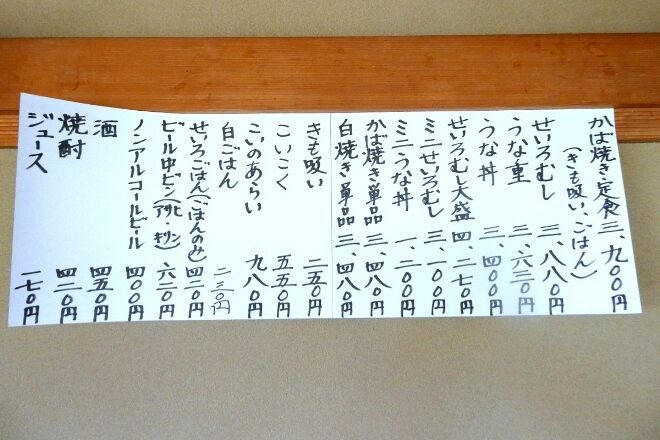 かば焼き定食 三、九００円
(きも吸い、ごはん)
せいろむし 三、八八０円
うな重 三、六三０円
うな丼 三、四００円
せいろむし大盛 四、二七０円
ミニせいろむし 三、一００円
ミニうな丼 一、二００円
かば焼き単品 三、四八０円
白焼き単品 三、四八０円
きも吸い 二五０円
こいこく 五五０円
こいのあらい 九八０円
白ごはん 二三０円
せいろごはん(ごはんのみ) 四二０円
ビール中ビン(アサヒ・キリン) 六二０円
ノンアルコールビール 四００円
酒 四五０円
焼酎 四二０円
ジュース 一七０円